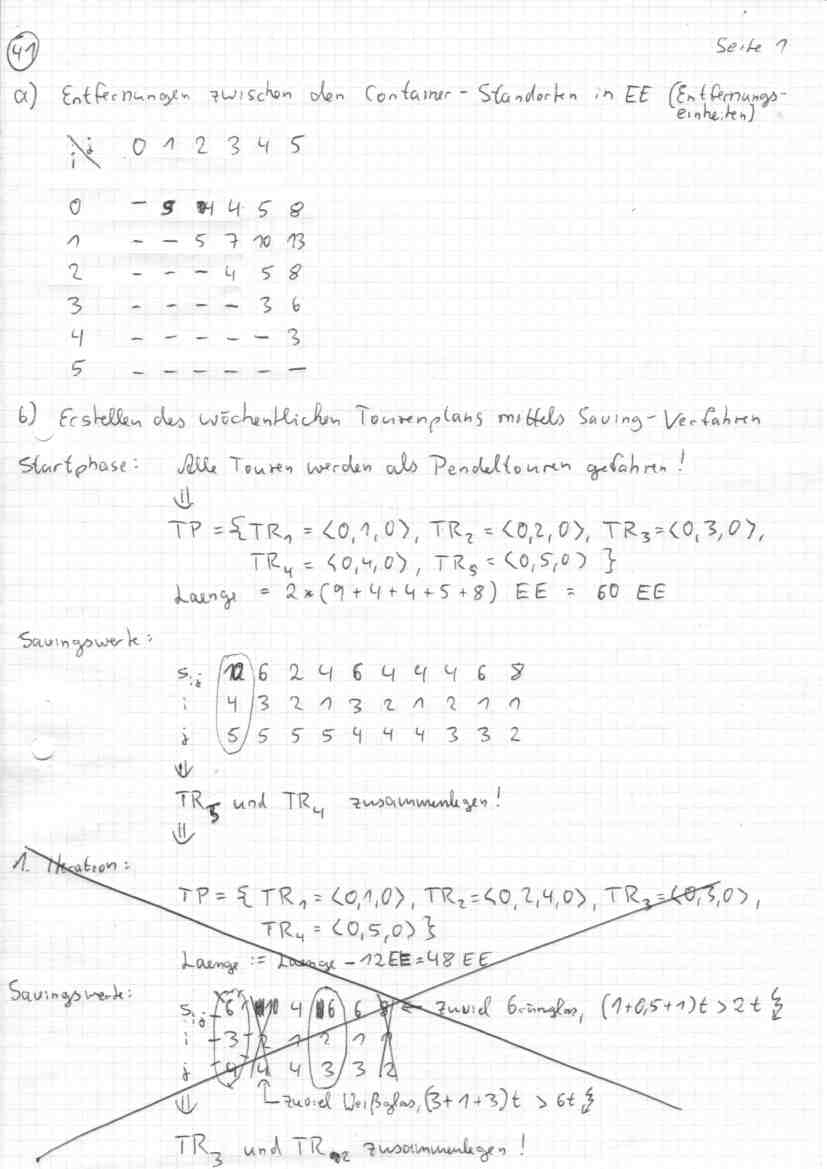 41
Seite 1
a) Entfernungen zwischen den Container-Standorten in EE (Entfernungs-
einheiten)
i\j 0 1 2 3 4 5
0 - 9 4 4 5 8
1 - - 5 7 10 13
2 - - - 4 5 8
3 - - - - 3 6
4 - - - - - 3
5 - - - - - -
b) Erstellen des wöchentlichen Tourenplans mittels Saving-Verfahren
Startphase: Alle Touren werden als Pendeltouren gefahren!
⇓
TP = {TR₁ = <0,1,0>, TR₂ = <0,2,0>, TR₃ = <0,3,0>,
TR₄ = <0,4,0>, TR₅ = <0,5,0> }
Laenge = 2*(9+4+4+5+8) EE = 60 EE
Savingswerte:
sᵢⱼ 10 6 2 4 6 4 4 4 6 8
i 4 3 2 1 3 2 1 2 1 1
j 5 5 5 5 4 4 4 3 3 2
⇓
TR₅ und TR₄ zusammenlegen!
⇓
1. Iteration:
TP = { TR₁ = <0,1,0>, TR₂ = <0,2,4,0>, TR₃ = <0,3,0>,
TR₄ = <0,5,0> }
Laenge := Laenge - 12EE = 48 EE
Savingswerte:
sᵢⱼ 6 10 4 6 6 8 ← zuviel Grünglas, (1+0,5+1)t > 2t
i 3 2 1 2 1 1
j 4 4 4 3 3 2
⇓ zuviel Weißglas, (3+1+3)t > 6t
TR₃ und TR₂ zusammenlegen!